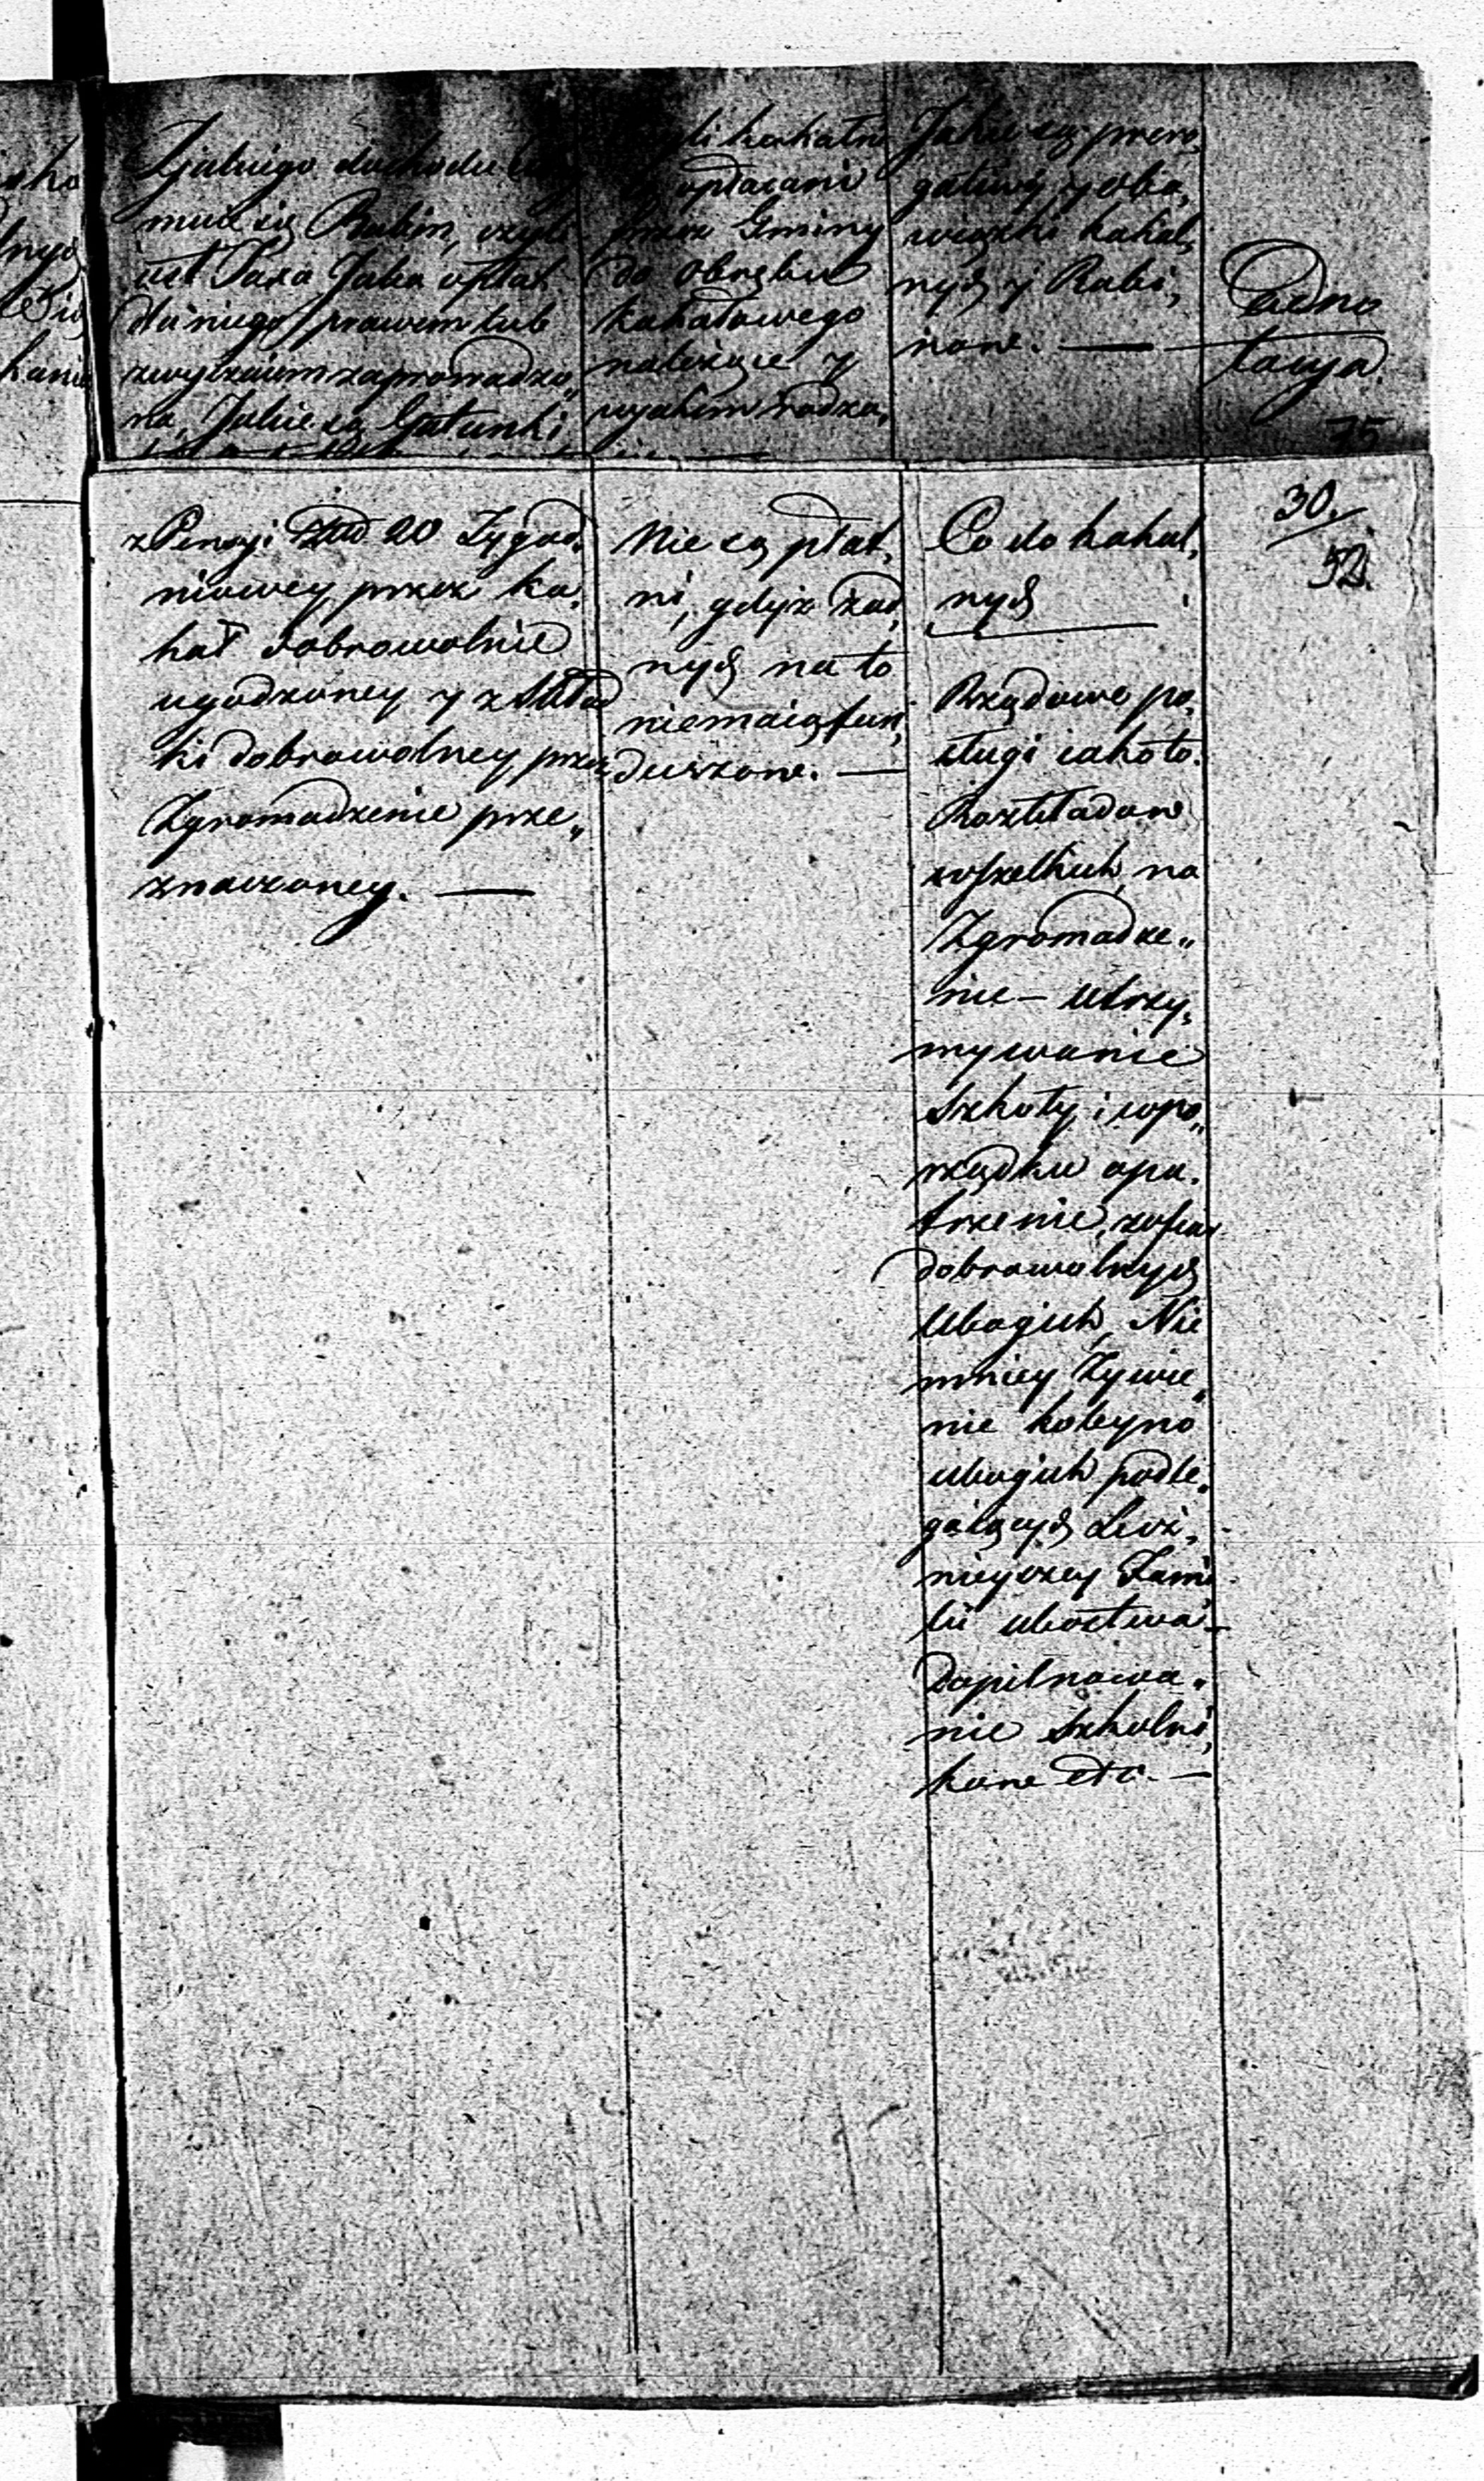 Z jakiego dochodu
muie się Rabin, czyli
iest Taxa Jaka opłat
dla niego prawem lub
zwyczaiem zaprowadzo„
na, Jakie są Gatunki
kahalni
opłacani
przez Gminy
do obrębu
kahałowego
należące y
w jakim rodza„
Jakie są prero„
gatiwy y obo„
wiązki kahal„
nych y Rabi„
now. —
Adno
tacya.
75
z Pensyi Złł 20 Tygod„
niowey przez ka„
hał dobrowolnie
ugodzoney y z Skład
ki dobrowolney przez
Zgromadzenie prze„
znaczoney. —
Nie są płat„
ni, gdyż żad„
nych na to
niemaią fun„
duszow. —
Co do kahal„
nych
Rządowe po„
sługi iako to.
Rozkładow
wszelkich na
Zgromadze„
nie — utrzy„
mywanie
Szkoły i w po„
rządku opa„
trzenie, z ofiar
dobrowolnych
Ubogich, Nie
mniey Żywie„
nie koleyno
ubogich podle„
gaiących Licz„
nieyszey Fami
lii ubostwa —
Dopilnowa„
nie Szkolni„
kow etc. —
30.
52.